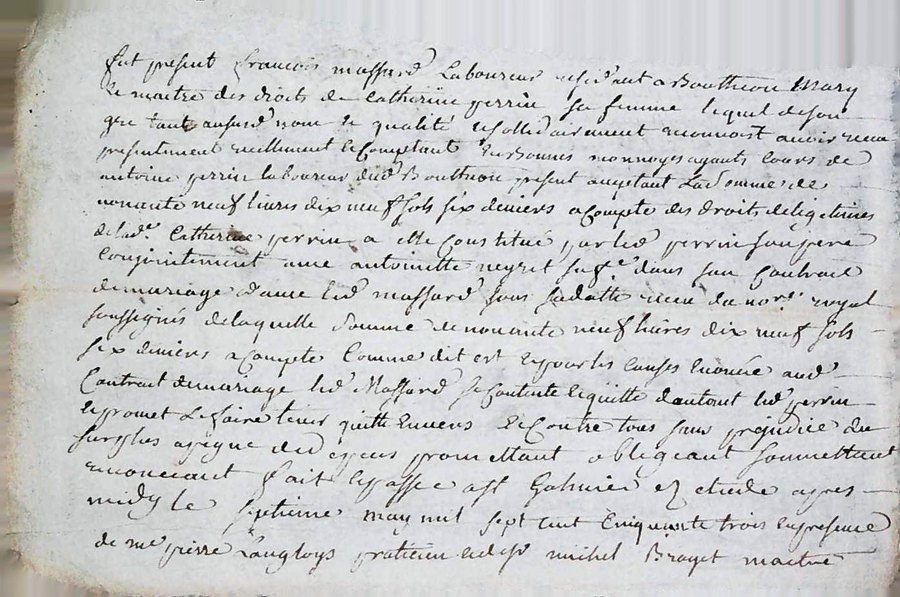 fut présent francois massard Laboureur résidant a Boutheon Mary
& maitre des droits de Catherine perrin sa femme lequel de son
gré tant aususd nom & qualité & sollidairement reconnoist avoir receu
presentement reellement & Comptant en bonnes monnoyes ayants Cours de
antoine perrin laboureur dud Boutheon présent acceptant La Somme de
nonante neuf livres dix neuf sols six deniers a Compte des droits de légitimes
de lad Catherine perrin a elle Constitué par led perrin son pere
Conjointement avec antoinette neyret sa fe dans son Contract
de mariage d'avec led massard sous sa datte receu du nore royal
soussignés de laquelle Somme de nonante neuf livres dix neuf sols
six deniers a Compte Comme dit est & pour les Causes Enoncée aud
Contract de mariage led Massard se Contente & quitte d'autant led perrin
& promet Le faire tenir quitte Envers & Contre tous sans prejudice du
surplus a peine de despens promettant obligeant soummettant
renoncant fait & passé a st Galmier Etude apres
midy Le septieme may mil sept cent Cinquante trois en presence
de me pierre Langloys praticien & de sr michel Brayet maitre